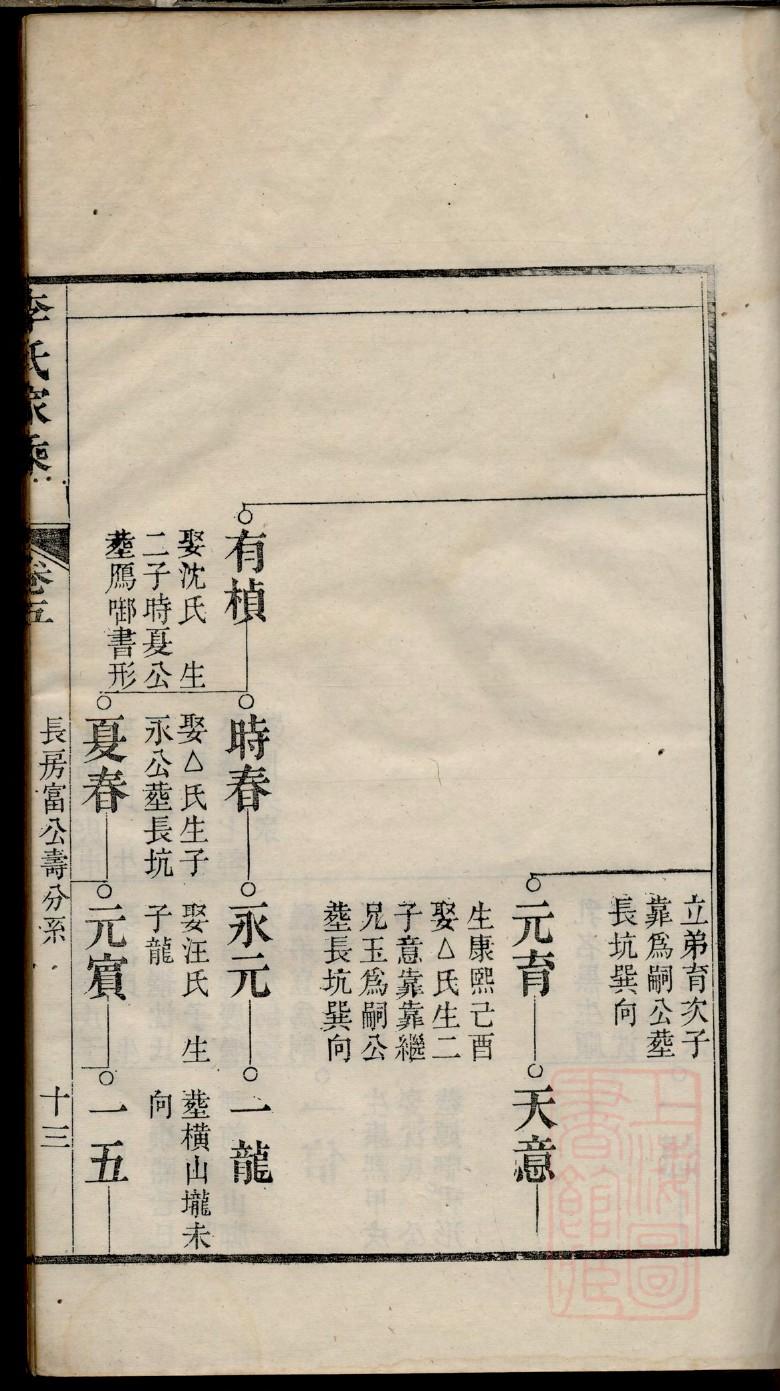 立弟育次子
靠為嗣公塟
長坑巽向
元育
生康熙己酉
娶△氏生二
子意靠靠繼
兄玉為嗣公
塟長坑巽向
天意
有楨
娶沈氏　生
二子時夏公
塟鴈啣書形
時春
娶△氏生子
永公塟長坑
永元
娶汪氏　生
子龍
一龍
塟橫山壠未
向
夏春
元賓
一五
李氏家乘
卷五
長房富公壽分系
十三
上海圖書館藏